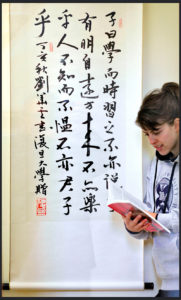 子曰學而時習之不亦說
有朋自遠方来不亦樂
乎人不知而不慍不亦君子
乎丁亥秋劉書復旦大學贈